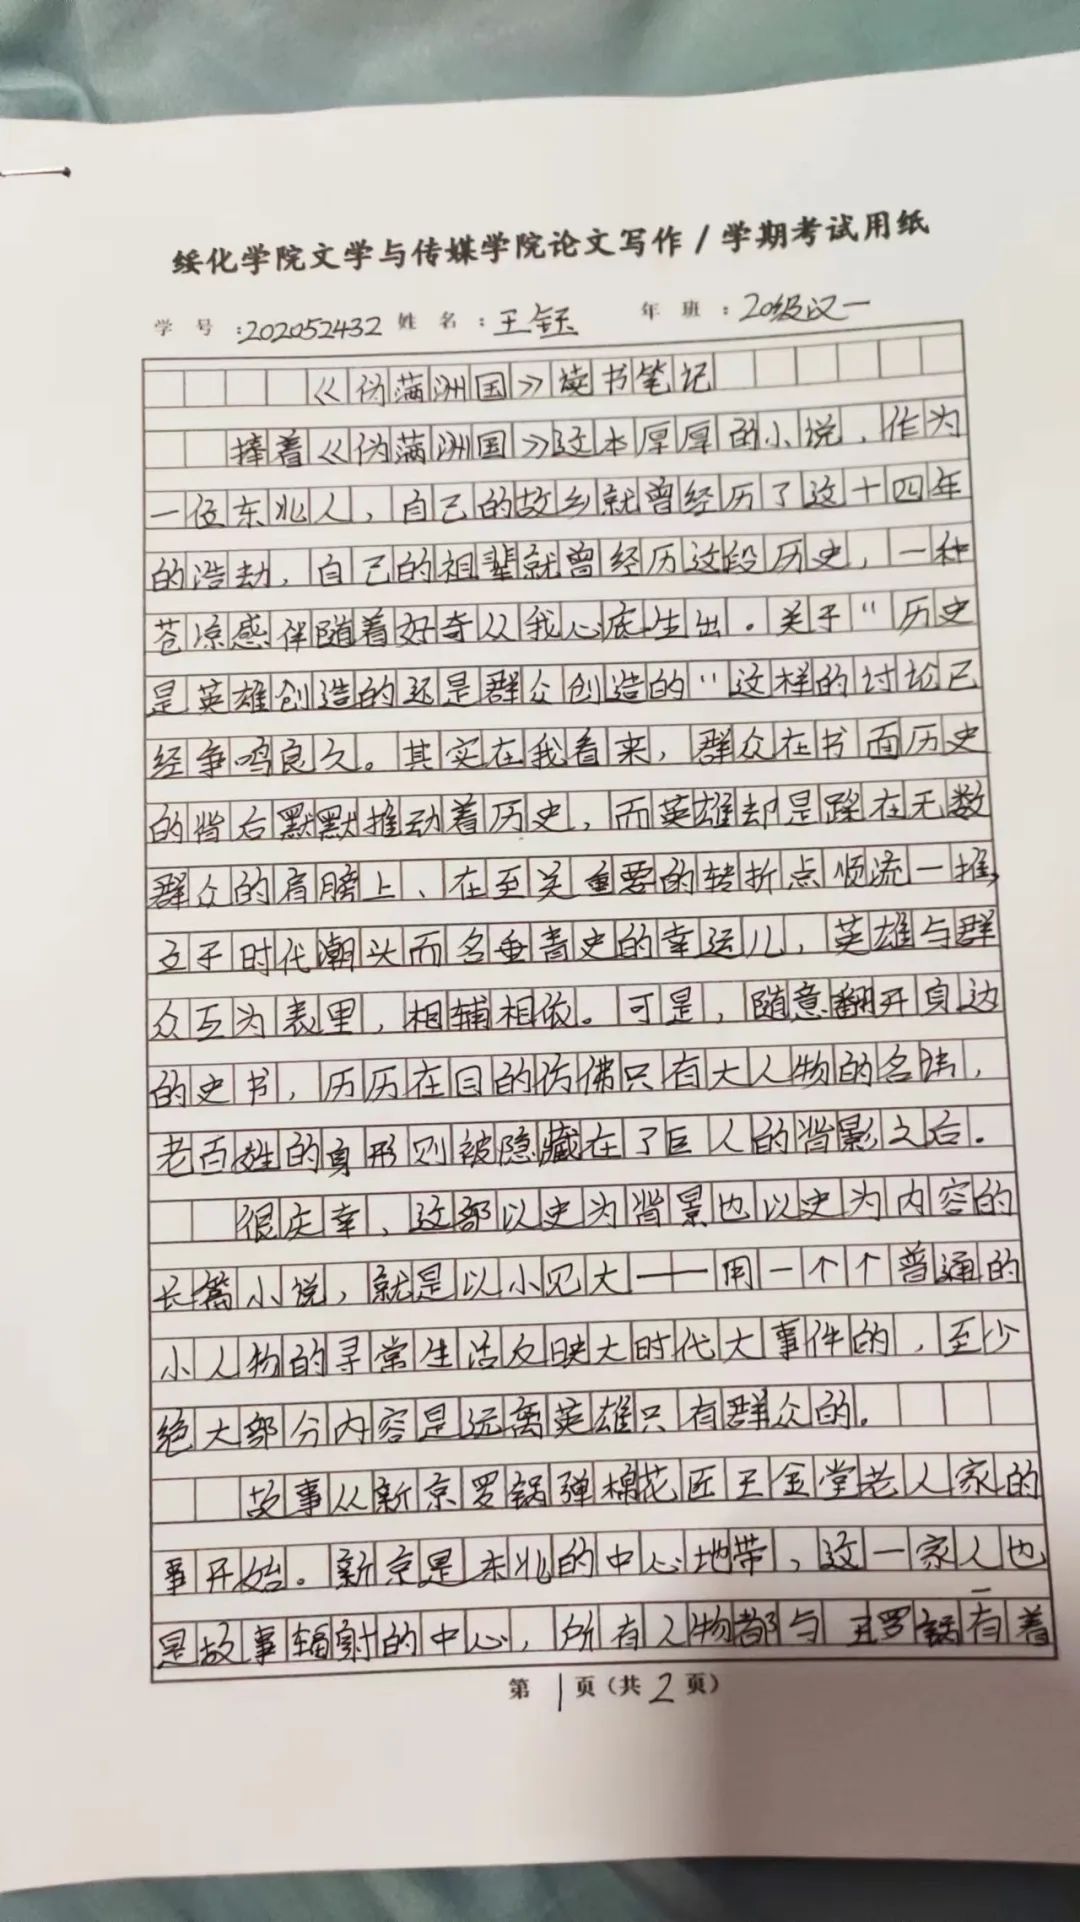 绥化学院文学与传媒学院论文写作/学期考试用纸
学号:202052432 姓名:王钰 年班:20级汉一
《伪满洲国》读书笔记
捧着《伪满洲国》这本厚厚的小说,作为
一位东北人,自己的故乡就曾经历了这十四年
的浩劫,自己的祖辈就曾经历这段历史,一种
苍凉感伴随着好奇从我心底生出。关于"历史
是英雄创造的还是群众创造的"这样的讨论已
经争鸣良久。其实在我看来,群众在书面历史
的背后默默推动着历史,而英雄却是踩在无数
群众的肩膀上、在至关重要的转折点顺流一推,
立于时代潮头而名垂青史的幸运儿,英雄与群
众互为表里,相辅相依。可是,随意翻开身边
的史书,历历在目的仿佛只有大人物的名讳,
老百姓的身形则被隐藏在了巨人的背影之后。
很庆幸,这部以史为背景也以史为内容的
长篇小说,就是以小见大——用一个个普通的
小人物的寻常生活反映大时代大事件的,至少
绝大部分内容是远离英雄只有群众的。
故事从新京罗锅弹棉花匠王金堂老人家的
事开始。新京是东北的中心地带,这一家人也
是故事辐射的中心,所有人物都与王罗锅有着
第1页(共2页)